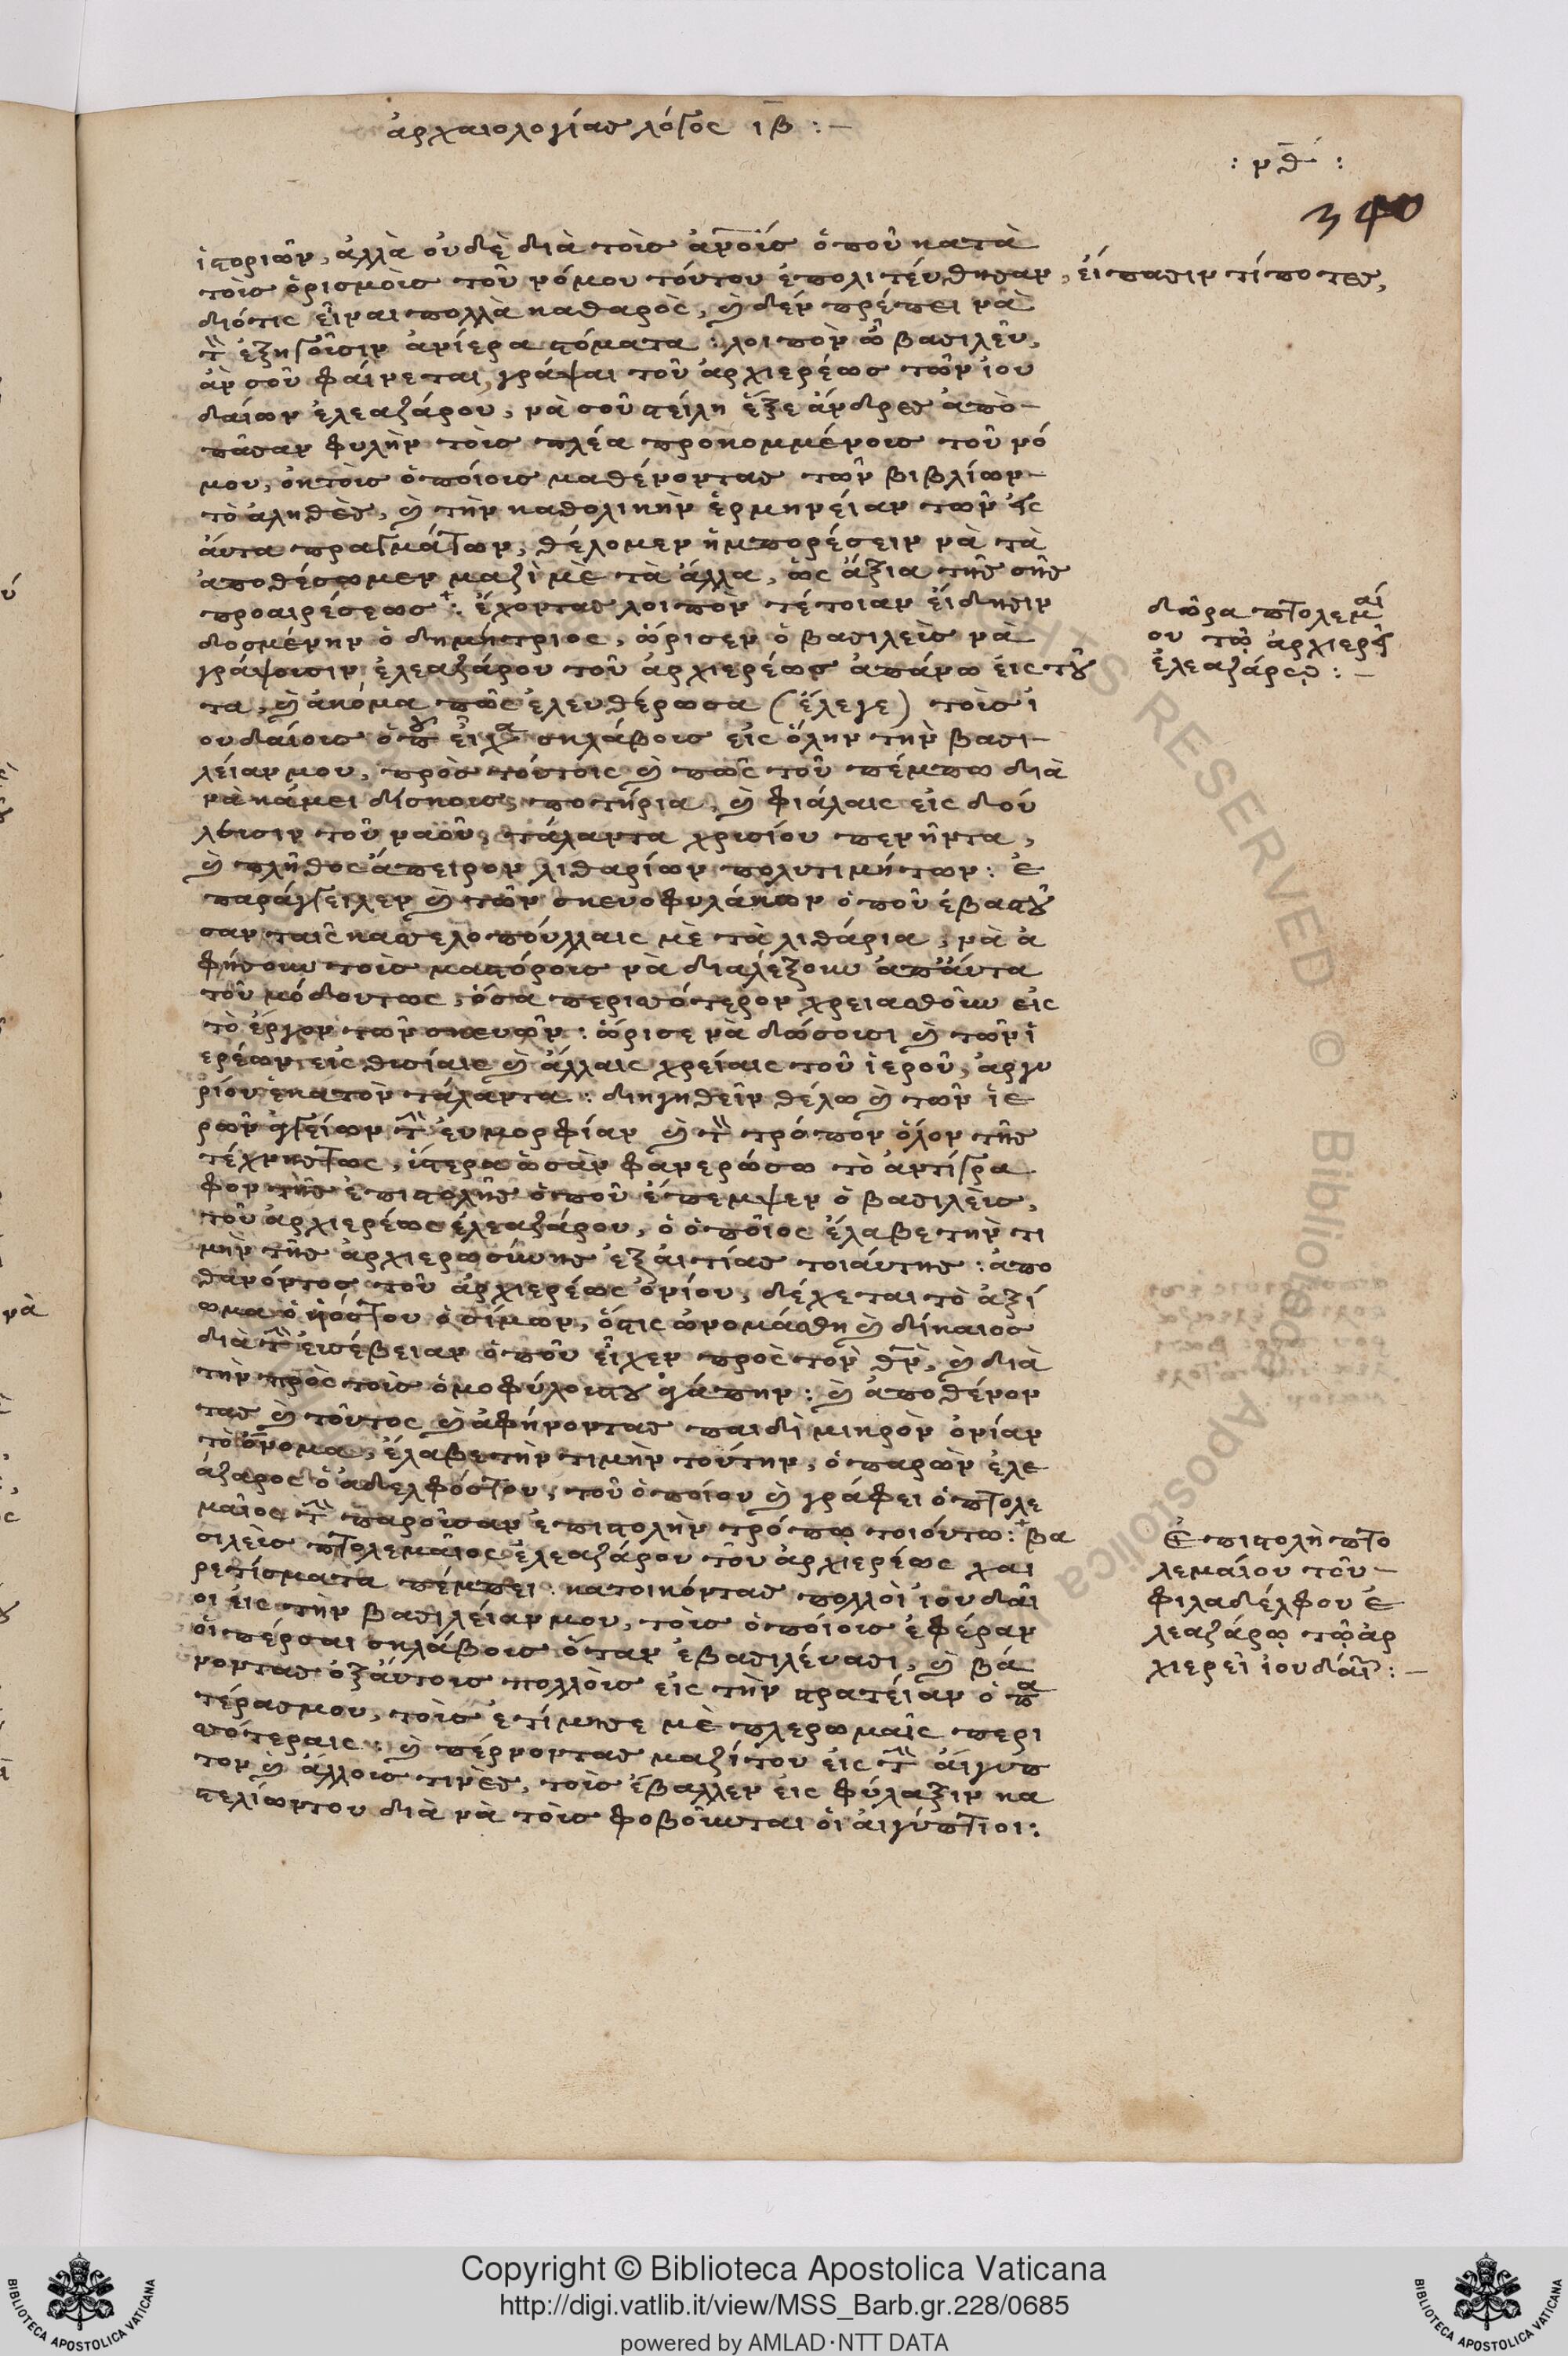 ἀρχαιολογίας λόγος ιβ :—
: ρθ :
340
ἱστοριῶν, ἀλλὰ οὐδὲ διὰ τοὶς αὐτοὶς ὁποῦ κατὰ
τοὶς ὁρισμοὶς τοῦ νόμου τούτου ἐπολιτεύθησαν, εἴπασιν τίποτες,
διότις εἶναι πολλὰ καθαρὸς, καὶ δὲν πρέπει νὰ
τὸν ἐξηγοῦσιν ἀνίερα στόματα : λοιπὸν ὦ βασιλεῦ,
ἂν σοῦ φαίνεται, γράψαι τοῦ ἀρχιερέως τῶν ἰου
δαίων ἐλεαζάρου, νὰ σοῦ στείλη ἕξε ἄνδρες ἀπὸ
πᾶσαν φυλὴν τοὶς πλέα προκομμένοις τοῦ νό
μου, ἐκ τοὶς ὁποίοις μαθένοντας τῶν βιβλίων
τὸ ἀληθὲς, καὶ τὴν καθολικὴν ἑρμηνείαν τῶν εἰς
αὐτα πραγμάτων, θέλομεν ἠμπορέσειν νὰ τὰ
ἀποθέσωμεν μαζὶ μὲ τὰ ἄλλα, ὡς ἄξια τῆς σῆς
προαιρέσεως : ἔχοντας λοιπὸν τέτοιαν εἴδησιν
δοσμένην ὁ δημήτριος, ὥρισεν ὁ βασιλεὶς νὰ
γράψουσιν ἐλεαζάρου τοῦ ἀρχιερέως ἀπάνω εἰς τοῦ
τα, καὶ ἀκόμα πῶς ἐλευθέρωσα (ἔλεγε) τοὶς ἰ
ουδαίοις ὁποῦ εἶχα σκλάβοις εἰς ὅλην τὴν βασι
λείαν μου, πρὸς τούτοις καὶ πῶς τοῦ πέμπω διὰ
νὰ κάμει δίσκοις, ποτήρια, καὶ φιάλαις εἰς δού
λευσιν τοῦ ναοῦ, τάλαντα χρισίου πενῆντα,
καὶ πλῆθος ἄπειρον λιθαρίων πολυτιμήτων : ἐ
παράγγειλεν καὶ τῶν σκευοφυλάκων ὁποῦ ἐβαστοῦ
σαν ταῖς κασελοπούλλαις μὲ τὰ λιθάρια, νὰ ἀ
φήσουν τοὶς μαστόροις νὰ διαλέξουν ἀπ' αὐτα
τοῦ μόδου τως, ὅσα περισσότερον χρειασθοῦν εἰς
τὸ ἔργον τῶν σκευῶν : ὥρισε νὰ δώσουσι καὶ τῶν ἱ
ερέων εἰς θυσίαις καὶ ἄλλαις χρείαις τοῦ ἱεροῦ, ἀργυ
ρίου ἑκατὸν τάλαντα : διηγηθεῖν θέλω καὶ τῶν ἱε
ρῶν ἀγγείων τὴν εὐμορφίαν καὶ τὸν τρόπον ὅλον τῆς
τέχνης τως, ὕστερα ὡσὰν φανερώσω τὸ ἀντίγρα
φον τῆς ἐπιστολῆς ὁποῦ ἔπεμψεν ὁ βασιλεὶς,
τοῦ ἀρχιερέως ἐλεαζάρου, ὁ ὁποῖος ἔλαβε τὴν τι
μὴν τῆς ἀρχιερωσύνης ἐξ αἰτίας τοιαύτης : ἀπο
θανόντος τοῦ ἀρχιερέως ὀνίου, δέχεται τὸ ἀξί
ωμα ὁ ὑιός του ὁ σίμων, ὅστις ὠνομάσθη καὶ δίκαιος
διὰ τὴν εὐσέβειαν ὁποῦ εἶχεν πρὸς τὸν θν, καὶ διὰ
τὴν πρὸς τοὶς ὁμοφύλοις του ἀγάπην : καὶ ἀποθένον
τας καὶ τοῦτος καὶ ἀφήνοντας παιδὶ μικρὸν ὀνίαν
τὸ ὄνομα, ἔλαβε τὴν τιμὴν τούτην, ὁ παρὼν ἐλε
άζαρος ὁ ἀδελφός του, τοῦ ὁποίου καὶ γράφει ὁ πτολε
μαῖος τὴν παροῦσαν ἐπιστολὴν τρόπῳ τοιούτω : βα
σιλεὶς πτολεμαῖος ἐλεαζάρου τοῦ ἀρχιερέως χαι
ρετίσματα πέμπει : κατοικόντας πολλοὶ ἰουδαῖ
οι εἰς τὴν βασιλείαν μου, τοὶς ὁποίοις ἐφέραν
οἱ πέρσαι σκλάβοις ὅταν ἐβασιλεύασι, καὶ βά
νοντας ἐξ αὐτοις πολλοὶς εἰς τὴν στρατείαν ὁ πα
τέρας μου, τοὶς ἐτίμησε μὲ πλερωμαῖς περι
σσότεραις : καὶ πέρνοντας μαζί του εἰς τὴν αἴγυπ
τον καὶ ἄλλοις τινὲς, τοὶς ἔβαλλεν εἰς φύλαξιν κα
στελίων του διὰ νὰ τοὶς φοβοῦνται οἱ αἰγύπτιοι :
δῶρα πτολεμαί
ου τῷ ἀρχιερεῖ
ἐλεαζάρῳ :—
Ἐπιστολὴ πτο
λεμαίου τοῦ
φιλαδέλφου ἐ
λεαζάρῳ τῷ ἀρ
χιερεῖ ἰουδαί :—
Copyright © Biblioteca Apostolica Vaticana
http://digi.vatlib.it/view/MSS_Barb.gr.228/0685
powered by AMLAD·NTT DATA
BIBLIOTECA APOSTOLICA VATICANA
BIBLIOTECA APOSTOLICA VATICANA